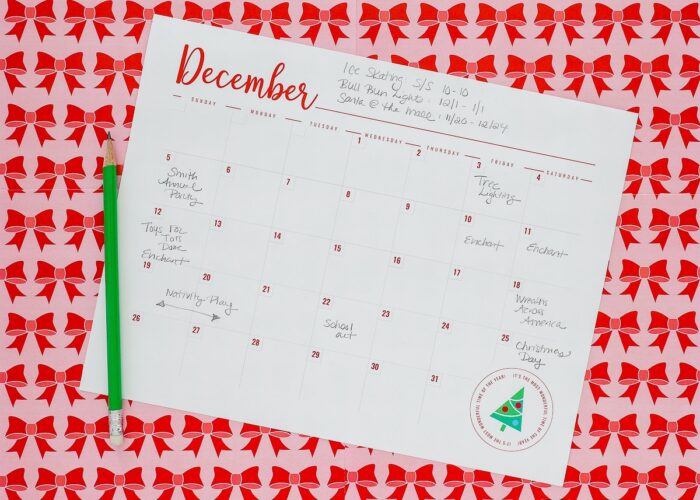 December
Ice Skating S/S 10-10
Bull Run Lights: 12/1 - 1/1
Santa @ the mall: 11/20 - 12/24
SUNDAY MONDAY TUESDAY WEDNESDAY THURSDAY FRIDAY SATURDAY
1 2 3 4
Tree
Lighting
5 6 7 8 9 10 11
Smith
Annual
Party
Enchant
Enchant
12 13 14 15 16 17 18
Toys For
Tots
Enchant
Wreaths
Across
America
19 20 21 22 23 24 25
Nativity Play
School
out
Christmas
Day
26 27 28 29 30 31
IT'S THE MOST WONDERFUL TIME OF THE YEAR!
IT'S THE MOST WONDERFUL TIME OF THE YEAR!